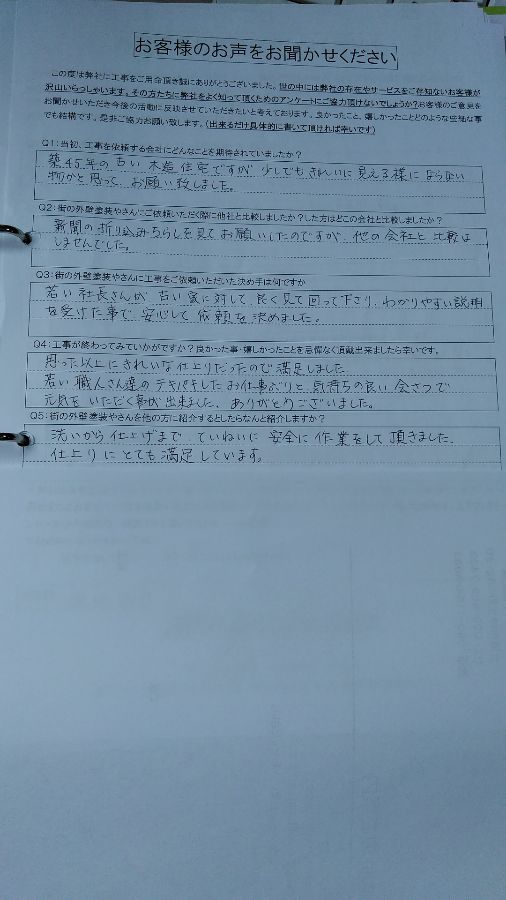 お客様のお声をお聞かせください
この度は弊社に工事をご用命頂き誠にありがとうございました。世の中には弊社の存在やサービスをご存知ないお客様が
沢山いらっしゃいます。その方たちに弊社をよく知って頂くためのアンケートにご協力頂けないでしょうか?お客様のご意見を
お聞かせいただき今後の活動に反映させていただきたいと考えております。良かったこと、嬉しかったことどのような些細な事
でも結構です。是非ご協力お願い致します。(出来るだけ具体的に書いて頂ければ幸いです)
Q1:当初、工事を依頼する会社にどんなことを期待されていましたか?
築45年の古い木造住宅ですが、少しでもきれいに見える様にならない
物かと思って、お願い致しました。
Q2:街の外壁塗装やさんにご依頼いただく際に他社と比較しましたか?した方はどこの会社と比較しましたか?
新聞の折り込みちらしを見てお願いしたのですが、他の会社と比較は
しませんでした。
Q3:街の外壁塗装やさんに工事をご依頼いただいた決め手は何ですか
若い社長さんが、古い家に対して、良く見て回って下さり、わかりやすい説明
を受けた事で、安心して依頼を決めました。
Q4:工事が終わってみていかがですか?良かった事・嬉しかったことを忌憚なく頂戴出来ましたら幸いです。
思った以上にきれいな仕上りだったので満足しました。
若い職人さん達のテキパキしたお仕事ぶりと、気持ちの良い会さつで
元気をいただく事が出来ました。ありがとうございました。
Q5:街の外壁塗装やさんを他の方に紹介するとしたらなんと紹介しますか?
洗いから仕上げまで、ていねいに安全に作業をして頂きました。
仕上りにとても満足しています。